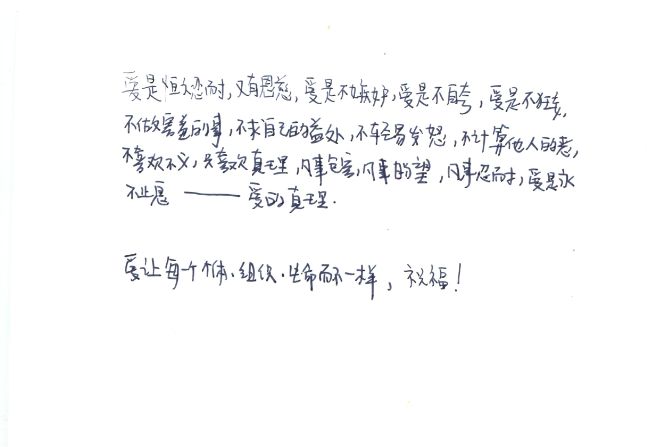 爱是恒久忍耐,又有恩慈,爱是不嫉妒,爱是不自夸,爱是不狂,
不做害羞的事,不求自己的益处,不轻易发怒,不计算他人的恶,
不喜欢不义,只喜欢真理,凡事包容,凡事盼望,凡事忍耐,爱是永
不止息 —— 爱的真理.
爱让每个个体、组织、生命而不一样,祝福!